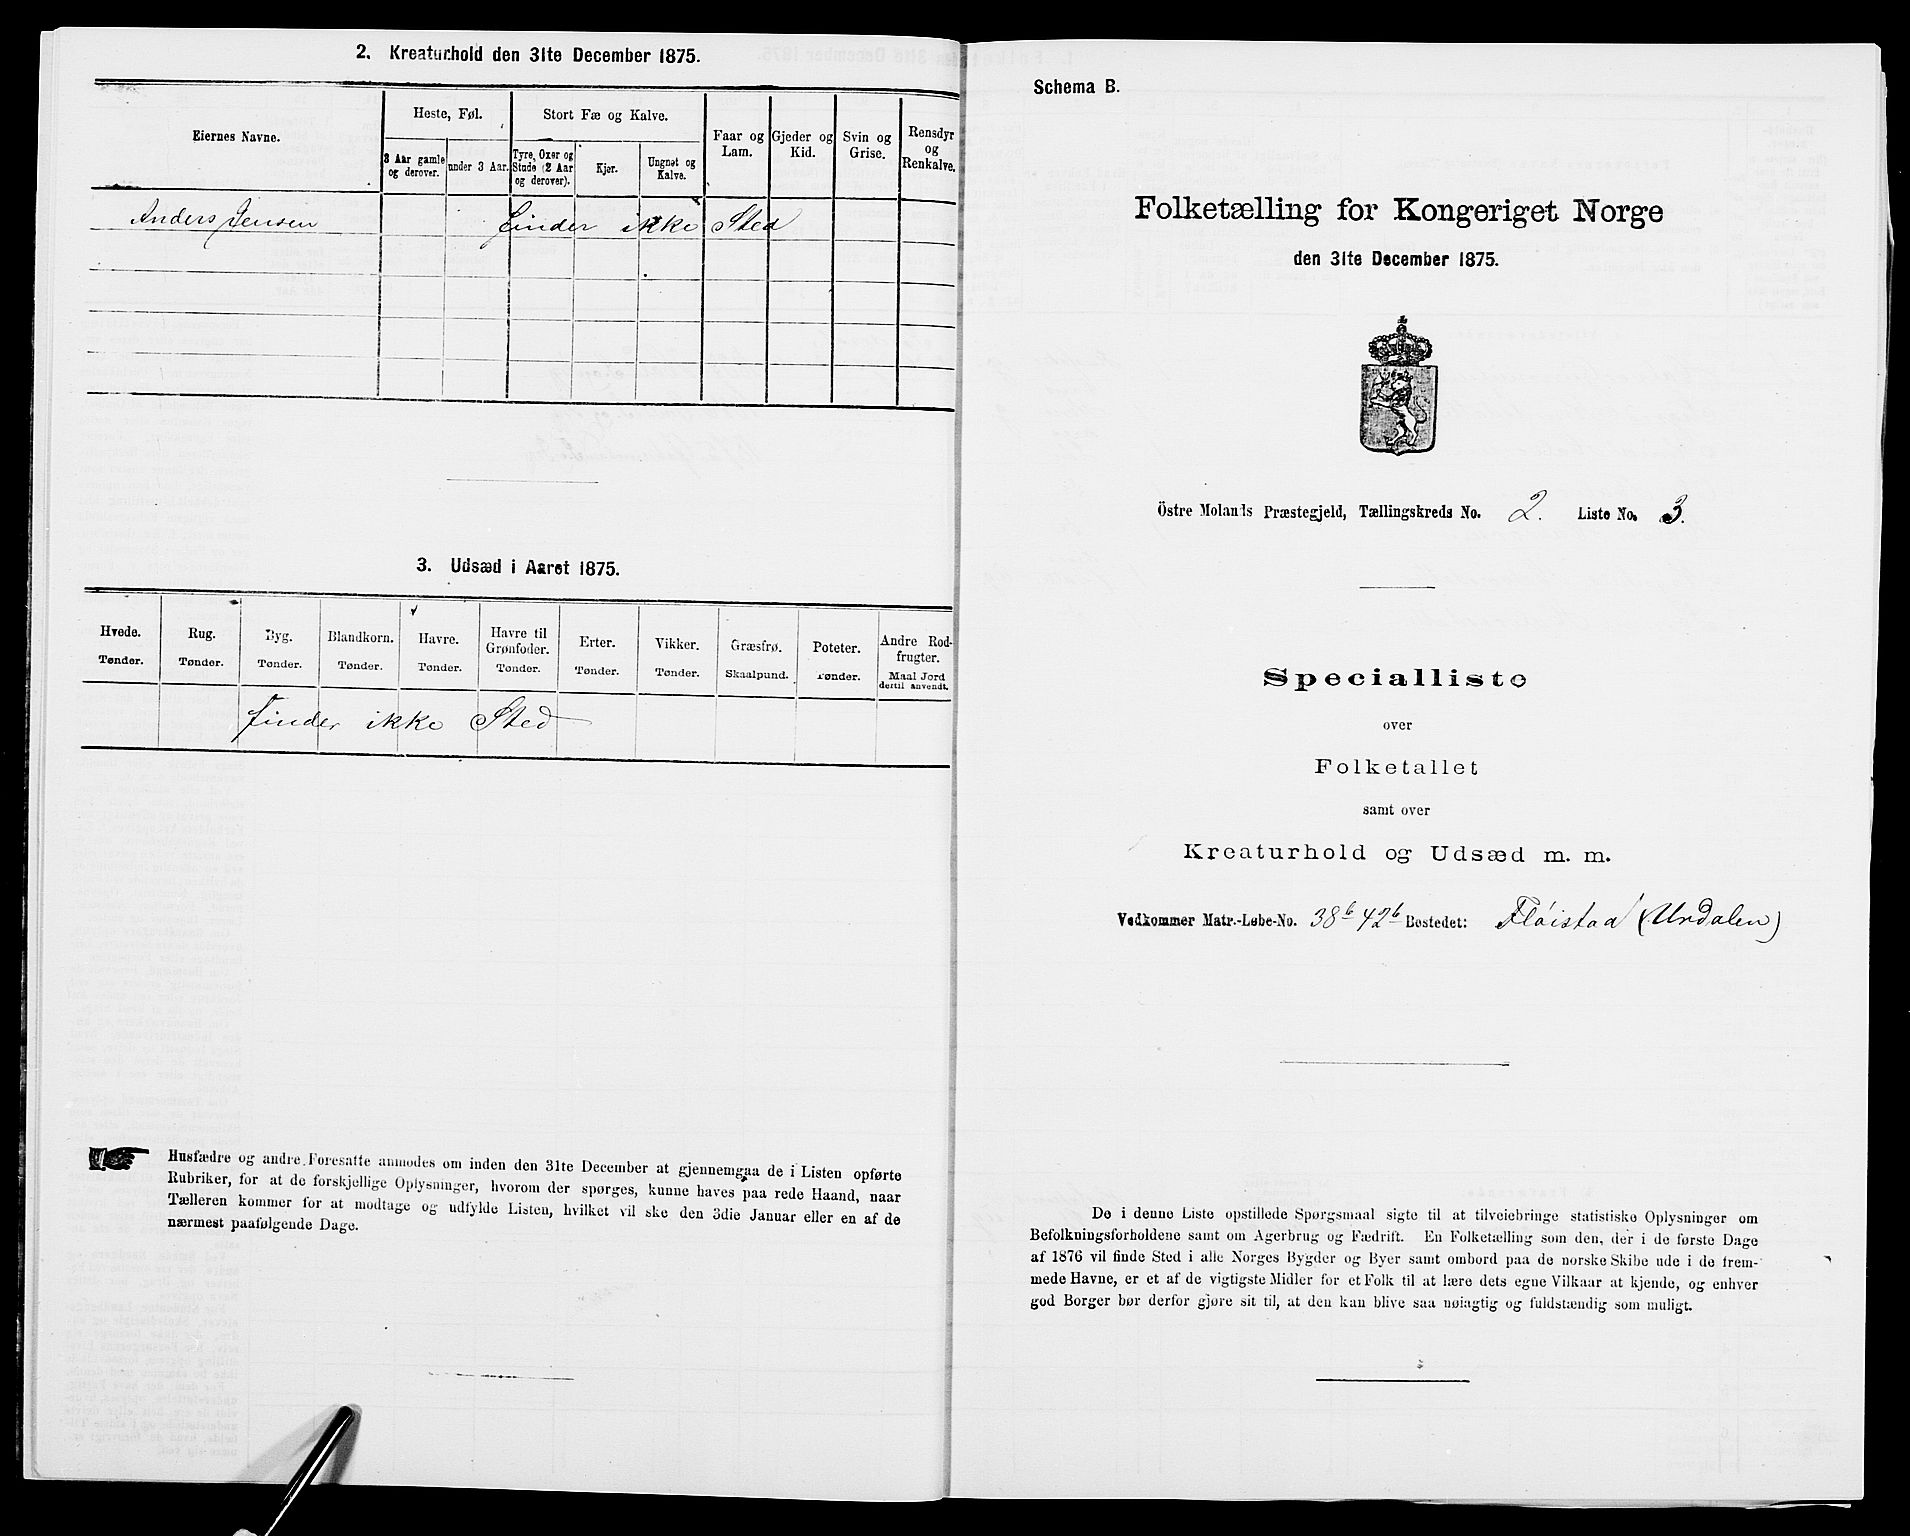 2. Kreaturhold den 31te December 1875.
Eiernes Navne.
Heste, Føl.
3 Aar gamle og derover.
under 3 Aar.
Stort Fæ og Kalve.
Tyre, Oxer og Stude (2 Aar og derover).
Kjør.
Ungnøt og Kalve.
Faar og Lam.
Gjeder og Kid.
Svin og Grise.
Rensdyr og Renkalve.
Anders Jensen finder ikke Sted
3. Udsæd i Aaret 1875.
Hvede. Tønder.
Rug. Tønder.
Byg. Tønder.
Blandkorn. Tønder.
Havre. Tønder.
Havre til Grønfoder. Tønder.
Erter. Tønder.
Vikker. Tønder.
Græsfrø. Skaalpund.
Poteter. Tønder.
Andre Rodfrugter. Maal Jord dertil anvendt.
finder ikke Sted
Husfædre og andre Foresatte anmodes om inden den 31te December at gjennemgaa de i Listen opførte
Rubriker, for at de forskjellige Oplysninger, hvorom der spørges, kunne haves paa rede Haand, naar
Tælleren kommer for at modtage og udfylde Listen, hvilket vil ske den 3die Januar eller en af de
nærmest paafølgende Dage.
Schema B.
Folketælling for Kongeriget Norge
den 31te December 1875.
Östre Molands Præstegjeld, Tællingskreds No. 2. Liste No. 3.
Specialliste
over
Folketallet
samt over
Kreaturhold og Udsæd m. m.
Vedkommer Matr.-Løbe-No. 38b 42b Bostedet: Fløistad (Urdalen)
De i denne Liste opstillede Spørgsmaal sigte til at tilveiebringe statistiske Oplysninger om
Befolkningsforholdene samt om Agerbrug og Fædrift. En Folketælling som den, der i de første Dage
af 1876 vil finde Sted i alle Norges Bygder og Byer samt ombord paa de norske Skibe ude i de frem-
mede Havne, er et af de vigtigste Midler for et Folk til at lære dets egne Vilkaar at kjende, og enhver
god Borger bør derfor gjøre sit til, at den kan blive saa nøiagtig og fuldstændig som muligt.